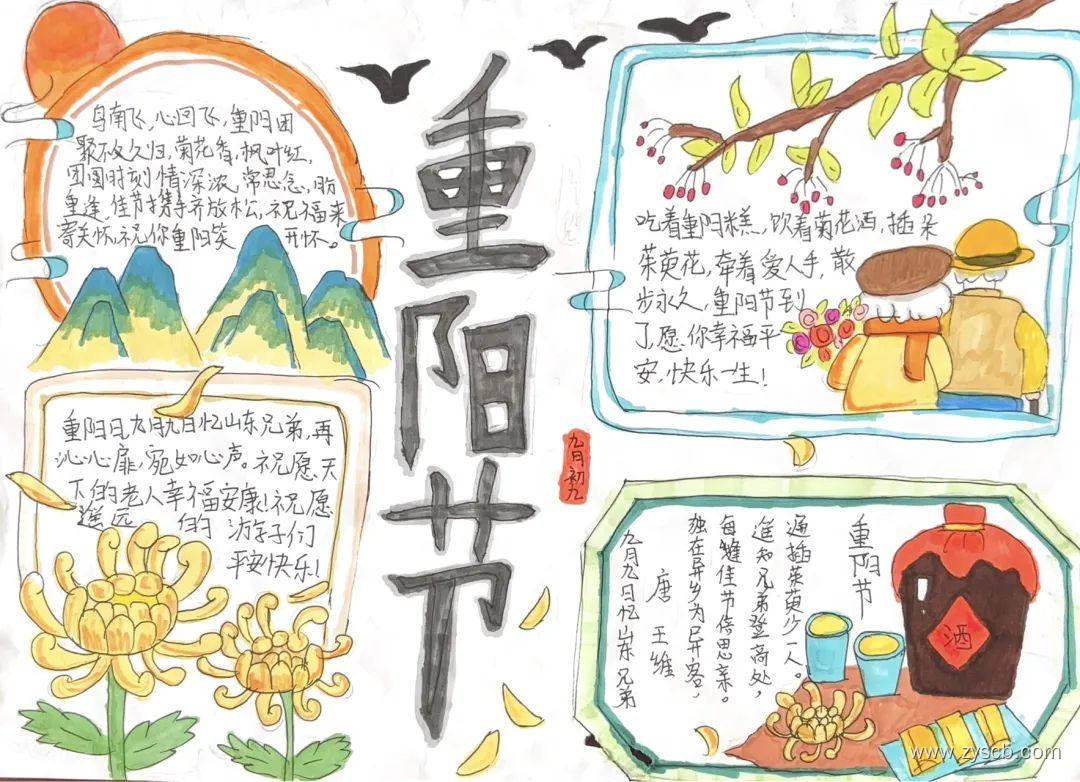 重阳节
鸟南飞,心回飞,重阳团
聚不必久归,菊花香,枫叶红,
团圆时刻情深浓,常思念,盼
重逢,佳节携手齐放松,祝福来
寄关怀,祝你重阳笑开怀。
吃着重阳糕,饮着菊花酒,插朵
茱萸花,牵着爱人手,散
步永久,重阳节到
了愿你幸福平
安,快乐一生!
重阳日,九月九日忆山东兄弟,再
沁心扉,宛如心声。祝愿天
下的老人幸福安康!祝愿
遥远的游子们
平安快乐!
九月初九
重阳节
遍插茱萸少一人。
遥知兄弟登高处,
每逢佳节倍思亲。
独在异乡为异客,
唐 王维
九月九日忆山东兄弟
酒
www.zyscb.com